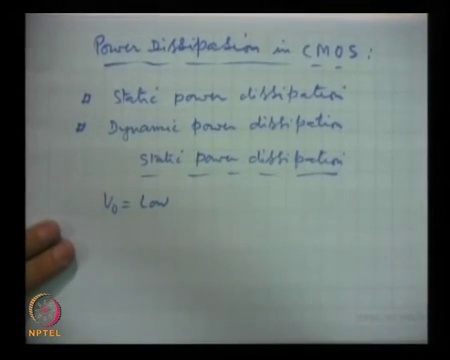 Power Dissipation in CMOS:
Static power dissipation
Dynamic power dissipation
static power dissipation
V0 = Low
NPTEL